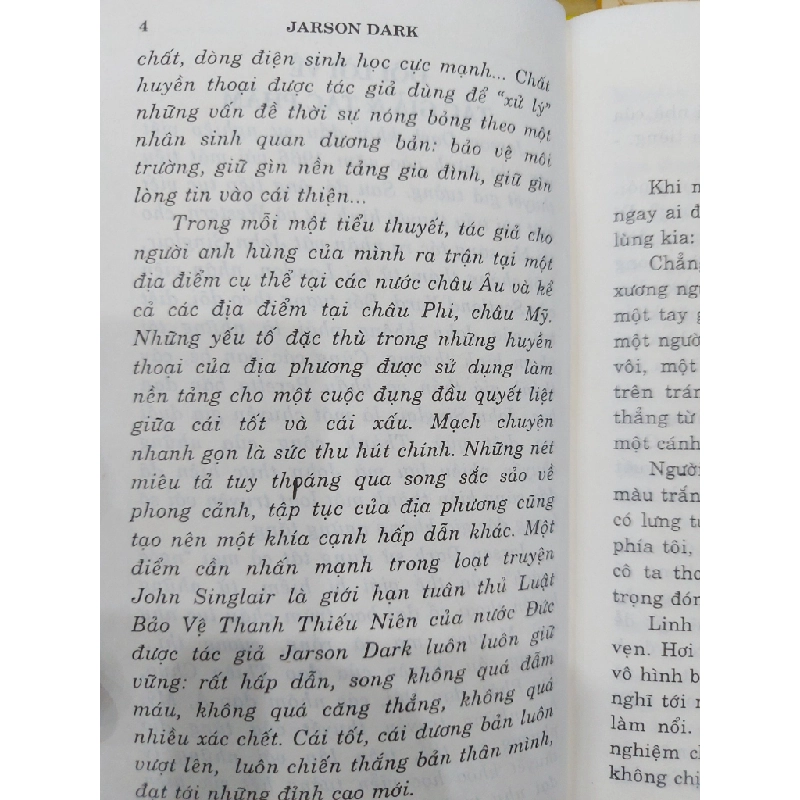 4 JARSON DARK
chất, dòng điện sinh học cực mạnh... Chất
huyền thoại được tác giả dùng để "xử lý"
những vấn đề thời sự nóng bỏng theo một
nhân sinh quan dương bản: bảo vệ môi
trường, giữ gìn nền tảng gia đình, giữ gìn
lòng tin vào cái thiện...
Trong mỗi một tiểu thuyết, tác giả cho
người anh hùng của mình ra trận tại một
địa điểm cụ thể tại các nước châu Âu và kể
cả các địa điểm tại châu Phi, châu Mỹ.
Những yếu tố đặc thù trong những huyền
thoại của địa phương được sử dụng làm
nền tảng cho một cuộc đụng đầu quyết liệt
giữa cái tốt và cái xấu. Mạch chuyện
nhanh gọn là sức thu hút chính. Những nét
miêu tả tuy thoáng qua song sắc sảo về
phong cảnh, tập tục của địa phương cũng
tạo nên một khía cạnh hấp dẫn khác. Một
điểm cần nhấn mạnh trong loạt truyện
John Singlair là giới hạn tuân thủ Luật
Bảo Vệ Thanh Thiếu Niên của nước Đức
được tác giả Jarson Dark luôn luôn giữ
vững: rất hấp dẫn, song không quá đẫm
máu, không quá căng thẳng, không quá
nhiều xác chết. Cái tốt, cái dương bản luôn
vượt lên, luôn chiến thắng bản thân mình,
đạt tới những đỉnh cao mới.
Khi
ngay ai
lùng kia:
Chẳng
xương
một tay
một người
vôi, một
trên trán
thẳng từ
một cánh
Người
màu trắng
có lưng
phía tôi,
cô ta
trọng
Linh
vẹn. Hơi
vô hình
nghĩ tới
làm nổi.
nghiệm
không